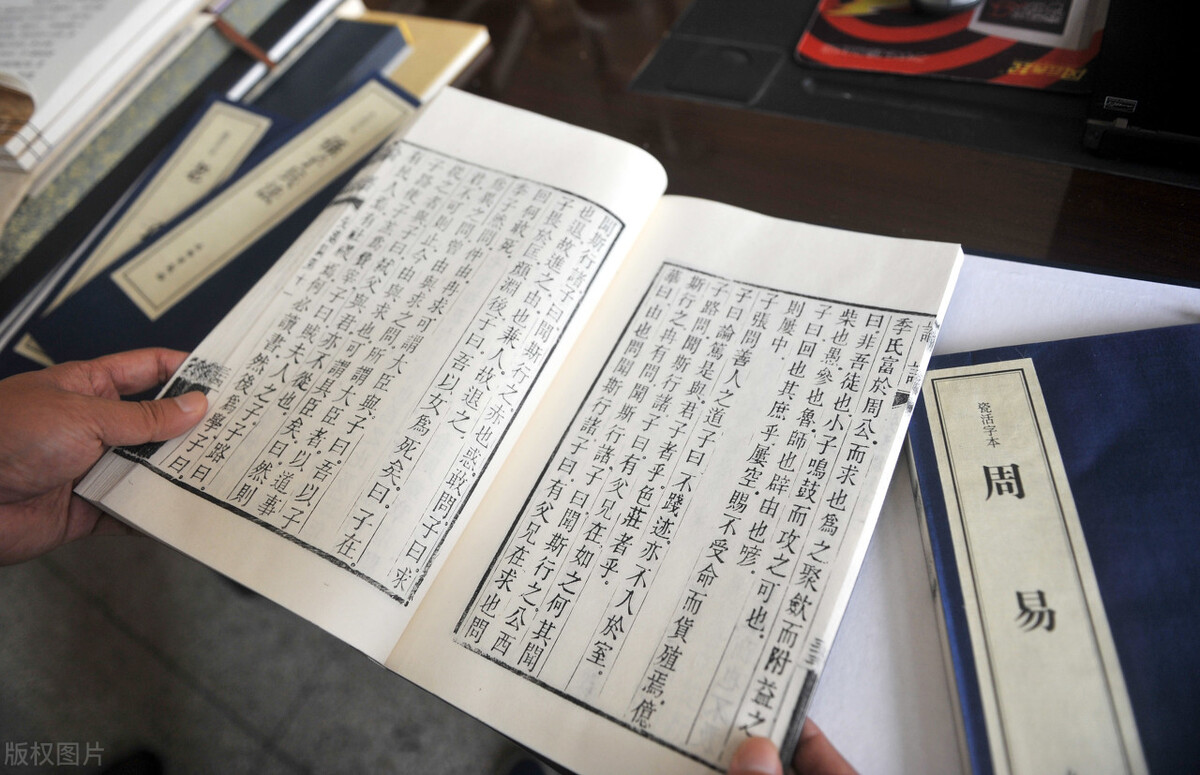 季氏富於周公。而求也為之聚斂而附益之
曰。非吾徒也。小子鳴鼓而攻之可也。
柴也愚。參也魯。師也辟。由也喭。
子曰。回也其庶乎。屢空。賜不受命而貨殖焉。億
則屢中。
子張問善人之道。子曰。不踐迹。亦不入於室。
子曰。論篤是與。君子者乎。色莊者乎。
子路問聞斯行諸。子曰。有父兄在。如之何其聞
斯行之。冉有問聞斯行諸。子曰。聞斯行之。公西
華曰。由也問聞斯行諸。子曰。有父兄在。求也問
聞斯行諸。子曰。聞斯行之。赤也惑。敢問。子曰。求
也退。故進之。由也兼人。故退之。
子畏於匡。顏淵後。子曰。吾以女為死矣。曰。子在。
回何敢死。
季子然問仲由冉求可謂大臣與。子曰。吾以子
為異之問。曾由與求之問。所謂大臣者。以道事
君。不可則止。今由與求也。可謂具臣矣。曰。然則
從之者與。子曰。弑父與君。亦不從也。
子路使子羔為費宰。子曰。賊夫人之子。子路曰。
有民人焉。有社稷焉。何必讀書。然後為學。子曰。
瓷活字本
周易
版权图片